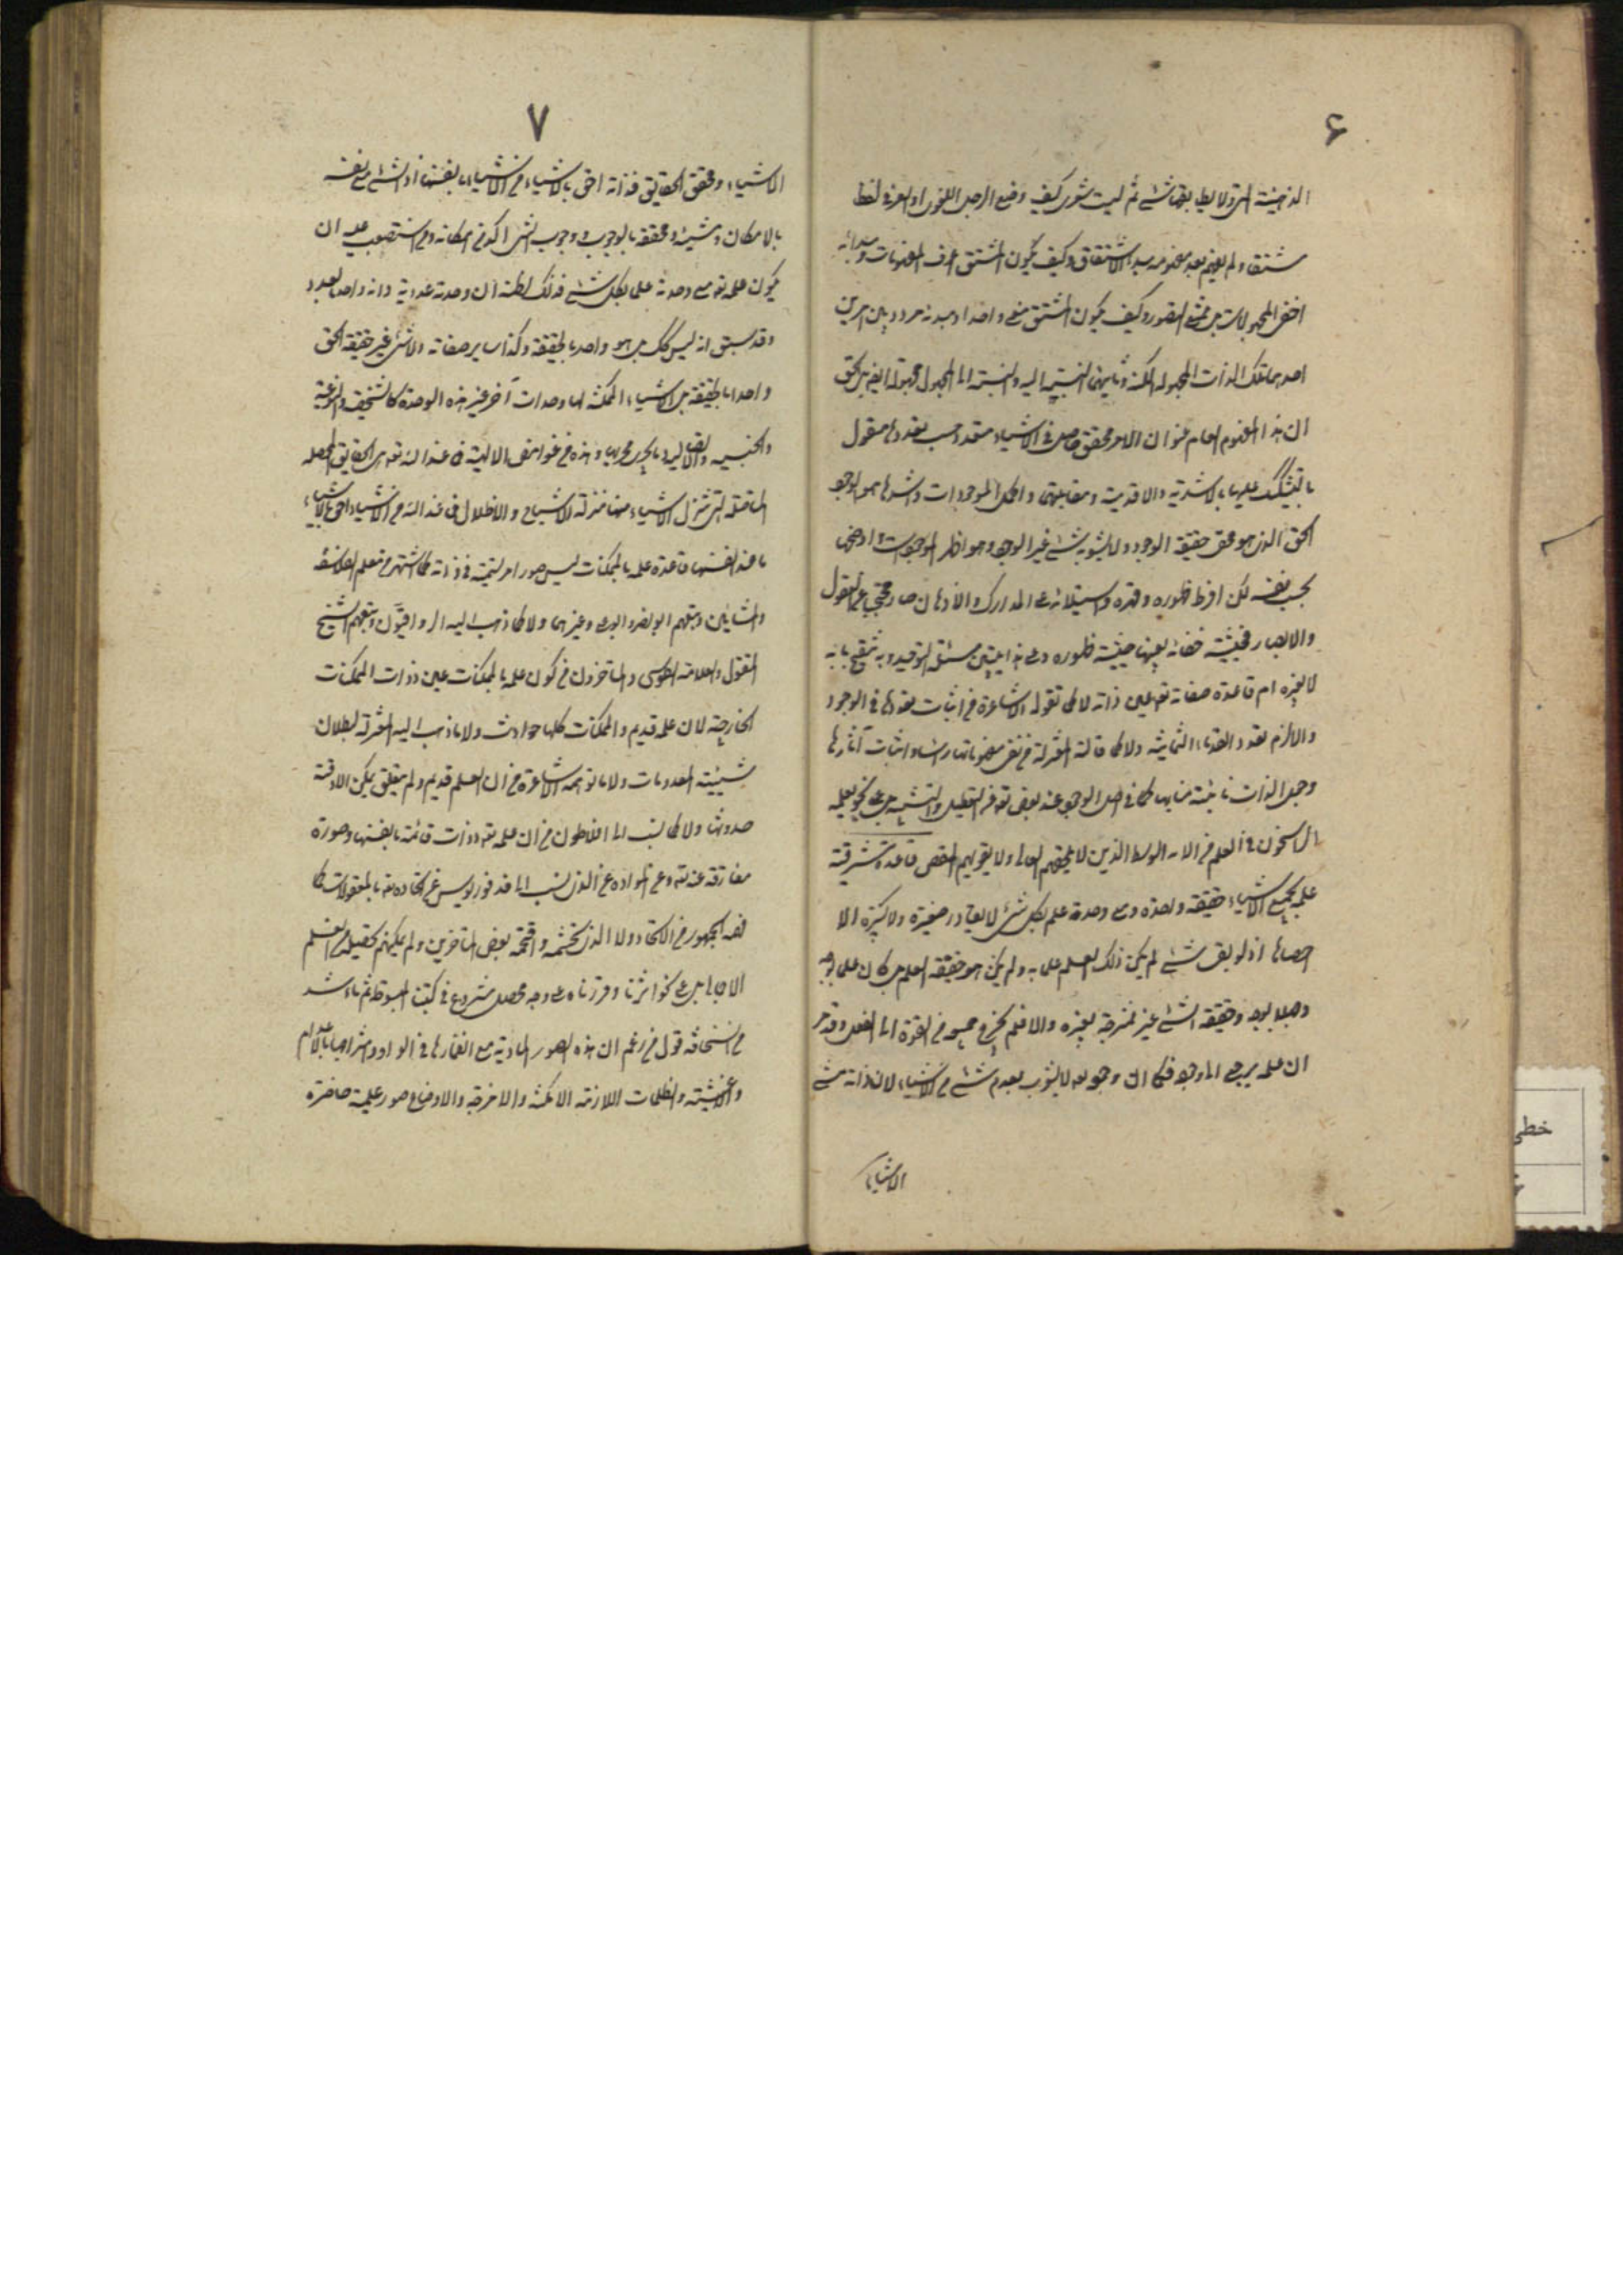 ۶
الذهنية التي لا يطابقها شئ ثم ليت شعري كيف وضع الرجل اللغوي او العرفي لفظ
مشتقا ولم يفهم بعد مفهوم مبدء الاشتقاق وكيف يكون المشتق اعرف المفهومات ومبدائه
اخفى المجهولات بل ممتنع التصور وكيف يكون المشتق معنى واحدا ومبدئه مردد بين امرين
احدهما تلك الذات المجهولة الكنه وثانيهما النسبة اليه والنسبة الى المجهول مجهولة ايضا بل الحق
ان هذا المفهوم العام عنوان لامر محقق حاصل في الاشياء متعدد حسب تعددها مقول
بالتشكيك عليها بالاشدية والاقدمية ومقابليهما واكمل الموجودات واشدها هو الوجود
الحق الذي هو محض حقيقة الوجود ولا يشوبه شئ غير الوجود وهو اظهر الموجودات واوضحها
بحسب نفسه لكن لفرط ظهوره وقهره واستيلائه على المدارك والاذهان صار محتجبا عن العقول
والابصار فحيثية خفائه بعينها حيثية ظهوره وعلى هذا يبتني مسئلة التوحيد وبه ينفتح بابه
لا بغيره ام قاعدة صفاته تعالى عين ذاته لا كما تقوله الاشاعرة من اثبات تعددها في الوجود
والا لزم تعدد القدماء الثمانية ولا كما قالته المعتزلة من نفي مفهوماتها راسا واثبات آثارها
وجعل الذات نائبة منابها كما في اصل الوجود عند بعض تعالى عن التعطيل والتشبيه بل على نحو يعلمه
الراسخون في العلم من الامة الوسط الذين لا يلحقهم الغالي ولا يفوتهم المقصر قاعدة مشرقية
علمه بجميع الاشياء حقيقة واحدة ومع وحدته علم بكل شئ لا يغادر صغيرة ولا كبيرة الا
احصاها اذ لو بقي شئ لم يكن ذلك العلم علما به ولم يكن هو حقيقة العلم بل كان علما بوجه
وجهلا بوجه وحقيقة الشئ غير ممتزجة بغيره والا فلم يخرج جميعه من القوة الى الفعل وقد مر
ان علمه يرجع الى وجوده فكما ان وجوده لا يشوب بعدم شئ من الاشياء لان ذاته مشئ
الاشياء
۷
الاشياء ومحقق الحقايق فذاته احق بالاشياء من الاشياء بانفسها اذ الشئ مع نفسه
بالامكان ومع مشيئه ومحققه بالوجوب ووجوب الشئ اكد من امكانه ومن استصعب عليه ان
يكون علمه تعالى مع وحدته علما بكل شئ فذلك لظنه ان وحدته عددية وانه واحد بالعدد
وقد سبق انه ليس كذلك بل هو واحد بالحقيقة وكذا ساير صفاته ولا شئ غير حقيقة الحق
واحدا بالحقيقة بل الاشياء الممكنة لها وحدات آخر غير هذه الوحدة كالشخصية والنوعية
والجنسية والاتصالية وما يجري مجريها وهذه من غوامض الالهية فما عند الله تعالى هي الحقايق المحصلة
المتاصلة التي تنزل الاشياء منها منزلة الاشباح والاظلال فما عند الله من الاشياء احق بالاشياء
مما عند انفسها قاعدة علمه بالممكنات ليس صورا مرتسمة في ذاته كما اشتهر من معلم الفلاسفة
والمشائين وتبعهم ابو نصر وابو علي وغيرهما ولا كما ذهب اليه الرواقيون وتبعهم الشيخ
المقتول والعلامة الطوسي والمتاخرون من كون علمه بالممكنات عين ذوات الممكنات
الخارجية لان علمه قديم والممكنات كلها حوادث ولا ما ذهب اليه المعتزلة لبطلان
شيئية المعدومات ولا ما توهمه الاشاعرة من ان العلم قديم ولم يتعلق بممكن الا وقت
حدوثه ولا كما نسب الى افلاطون من ان علمه تعالى ذوات قائمة بانفسها وصورة
مفارقة عنه تعالى وعن المواد ولا الذي نسب الى فرفوريوس من اتحاده تعالى بالمعقولات كما
فهمه الجمهور من الاتحاد ولا الذي تجشمه واقتحمه بعض المتاخرين ولم يمكنهم تحصيله من العلم
الاجمالي بل على نحو اشرنا وقررناه على وجه محصل مشروح في كتبنا المبسوطة ثم ما اشد
في السخافة قول من زعم ان هذه الصور المادية مع انغمارها في المواد وامتزاجها بالاعدام
والاغشية والظلمات اللازمة للامكنة والازمنة والاوضاع صور علمية حاضرة
خطى